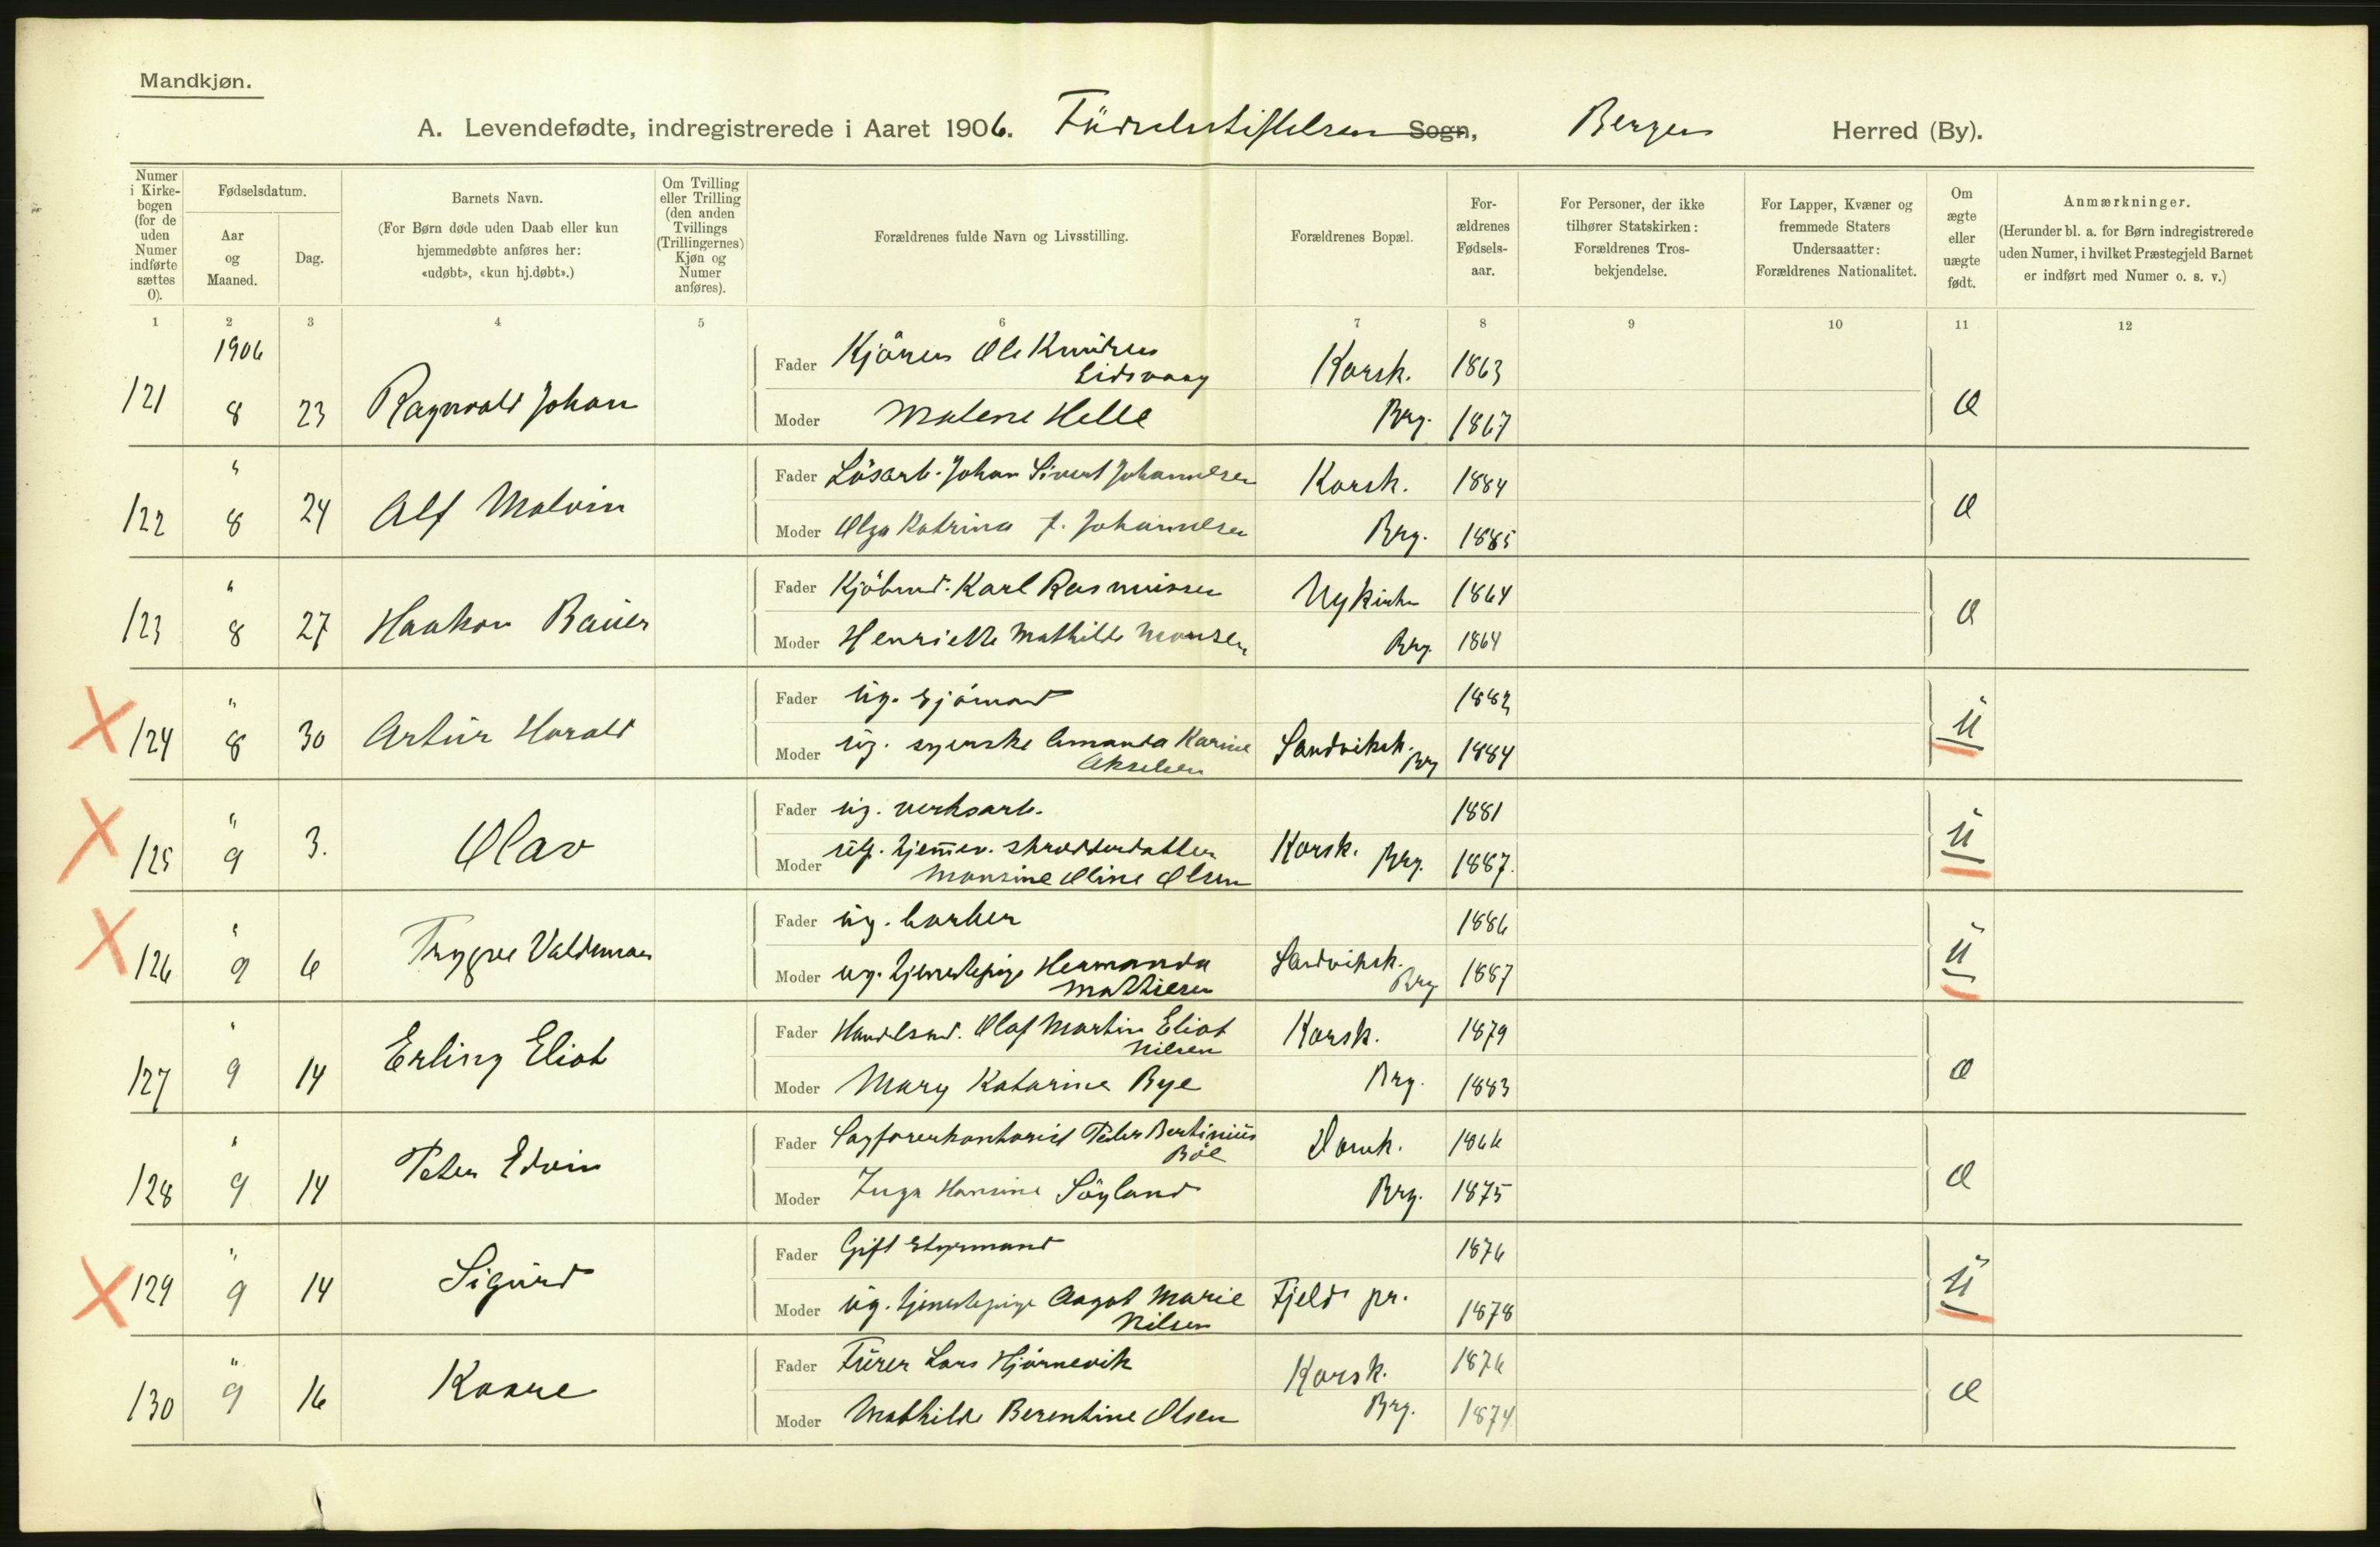 Mandkjøn.
A. Levendefødte, indregistrerede i Aaret 1906. Födselsstiftelsen Sogn, Bergen Herred (By).
Numer i Kirkebogen (for de uden Numer indførte sættes 0).
Fødselsdatum.
Aar og Maaned.
Dag.
Barnets Navn.
(For Børn døde uden Daab eller kun hjemmedøbte anføres her: «udøbt», «kun hj.døbt».)
Om Tvilling eller Trilling (den anden Tvillings (Trillingernes) Kjøn og Numer anføres).
Forældrenes fulde Navn og Livsstilling.
Forældrenes Bopæl.
Forældrenes Fødselsaar.
For Personer, der ikke tilhører Statskirken: Forældrenes Trosbekjendelse.
For Lapper, Kvæner og fremmede Staters Undersaatter: Forældrenes Nationalitet.
Om ægte eller uægte født.
Anmærkninger.
(Herunder bl. a. for Børn indregistrerede uden Numer, i hvilket Præstegjeld Barnet er indført med Numer o. s. v.)
1 2 3 4 5 6 7 8 9 10 11 12
1906
121 8 23 Ragnvald Johan Fader Kjörer Ole Knudsen Eidsvaag Korsk. 1863 Æ
Moder Malene Helle Brg. 1867
122 " 8 24 Alf Malvin Fader Lösarb. Johan Sivert Johannesen Korsk. 1884 Æ
Moder Olga Katrina f. Johannesen Brg. 1885
123 " 8 27 Haakon Bauer Fader Kjöbmd. Karl Rasmussen Nykirk 1864 Æ
Moder Henriette Mathilde Monsen Brg. 1864
124 " 8 30 Artur Harald Fader ug. sjömand 1882 U
Moder ug. syerske Amanda Karine Akselsen Sandviksk. Brg 1884
125 " 9 3. Olav Fader ug. verksarb. 1881 U
Moder ug. hjemmev. skredderdatter Monsine Oline Olsen Korsk. Brg. 1887.
126 " 9 6 Trygve Valdemar Fader ug. barber 1886 U
Moder ug. tjenestepige Hermanda Mathiesen Sandviksk. Brg 1887
127 " 9 14 Erling Eliot Fader Handelsmd. Olaf Martin Eliot Nilsen Korsk. 1879 Æ
Moder Mary Katarina Bye Brg. 1883
128 " 9 14 Peter Edvin Fader Sagförerkontorist Peder Bertinius Böe Domk. 1866 Æ
Moder Inga Hansine Söyland Brg. 1875
129 " 9 14 Sigurd Fader Gift Styrmand 1876 U
Moder ug. tjenestepige Aagot Marie Nilsen Fjeld pr. 1878
130 " 9 16 Kaare Fader Furer Lars Hjörnevik Korsk. 1876 Æ
Moder Mathilde Berentine Olsen Brg. 1874